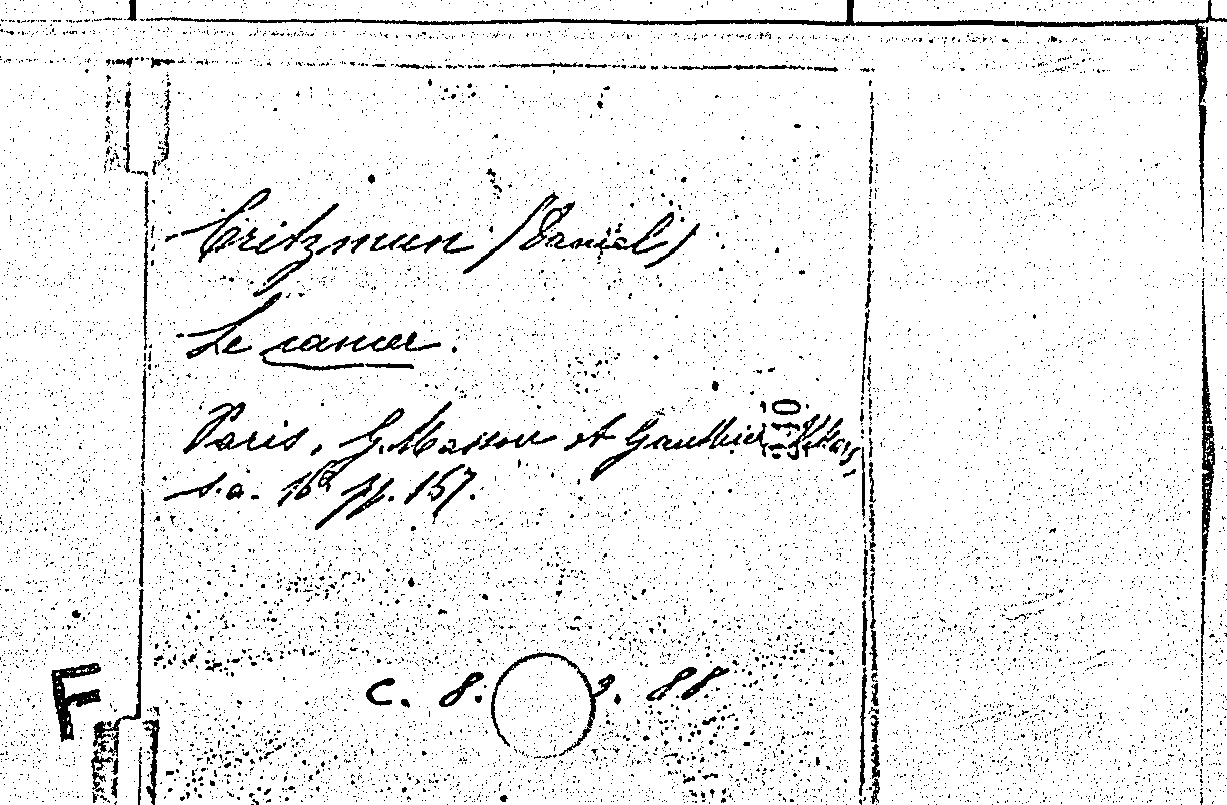 Critzman (Daniel)
Le cancer.
Paris, G. Masson et Gauthier Villars,
s.a. 16° pp. 157.
C. 8. 2. 88
F